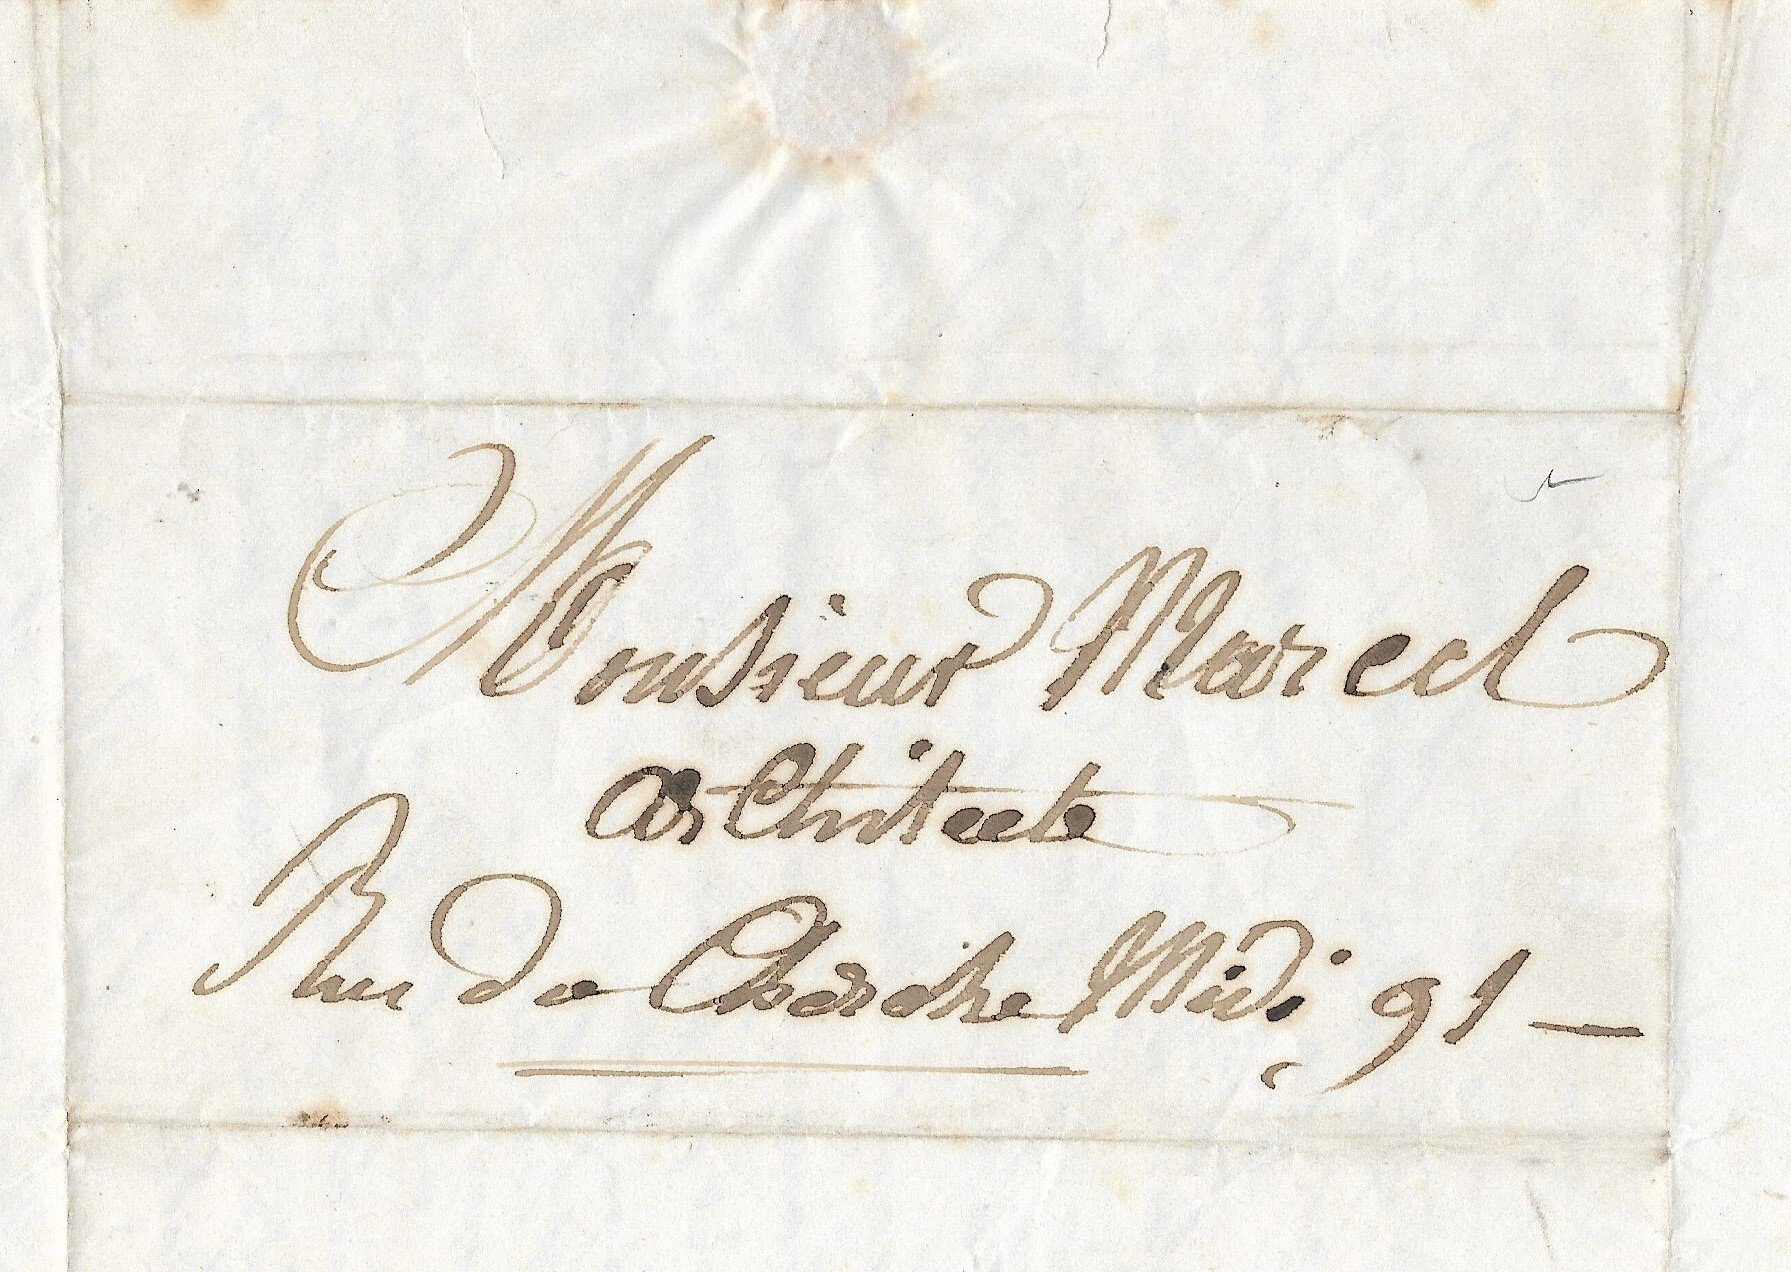 Monsieur Marcel
architecte
Rue du Cherche Midi 91 —